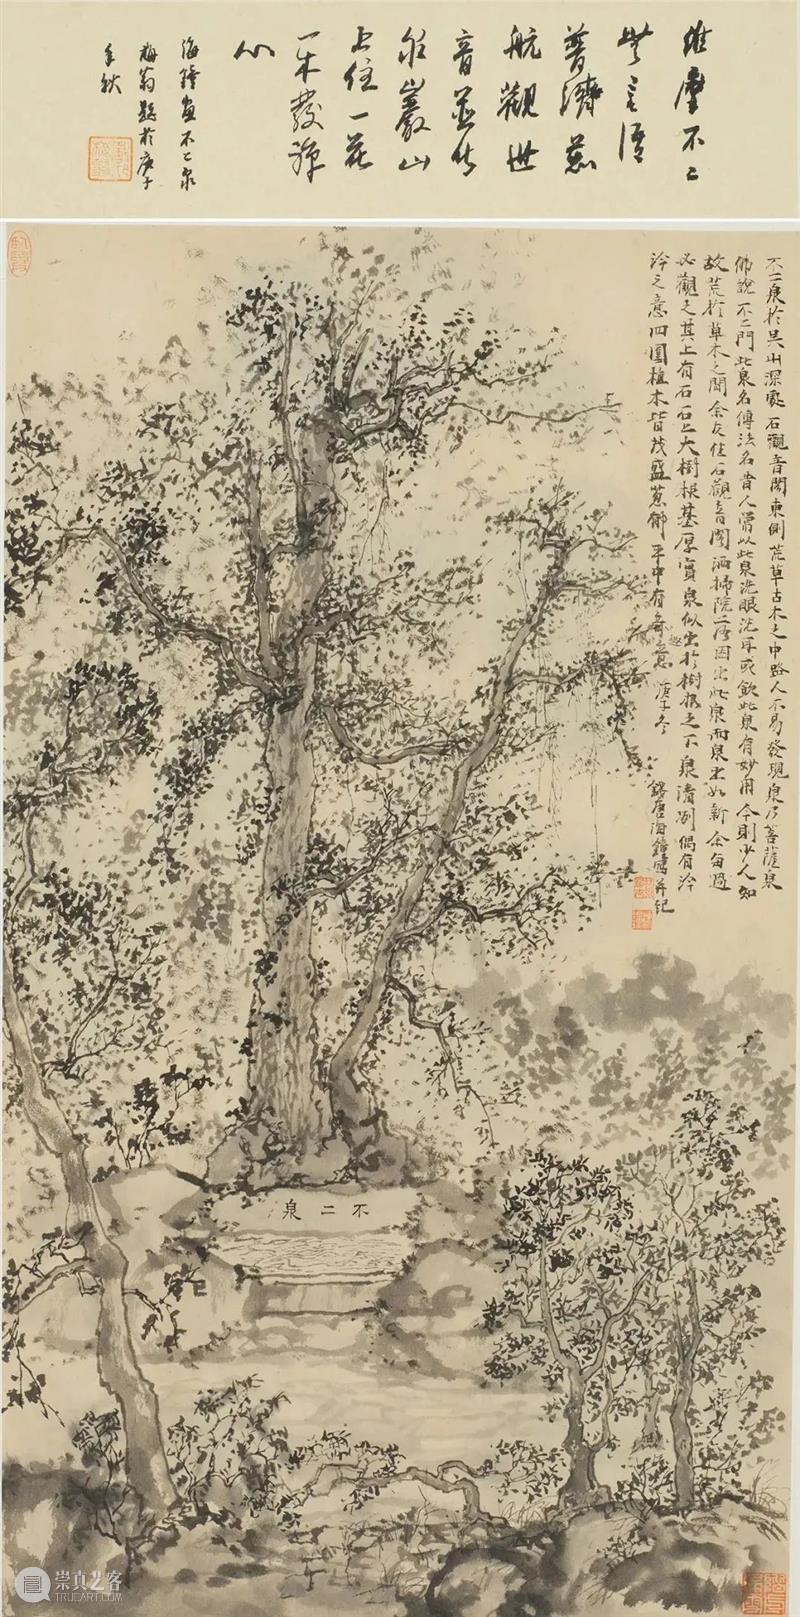 維摩不二
無言語
普濟慈
航觀世
音
巖山
上住一花
一木發禪
心
海鐘畫不二泉
梅翁題於庚子
年秋
不二泉於吳山深處石觀音閣東側荒草古木之中路人不易發現泉乃菩薩泉
佛說不二門此泉名傳法名昔人嘗以此泉洗眼洗耳或飲此泉有妙用今則少人知
故荒於草木之間余友住石觀音閣洒掃院落因出此泉而泉出如新余每過
必觀之其上有石石上大樹根基厚實泉似出於樹根之下泉清冽偶有泠
泠之意四圍植木皆茂盛蔥鬱平中有奇意趣 庚子冬 錢唐海鐘寫並記
不二泉
崇真艺客